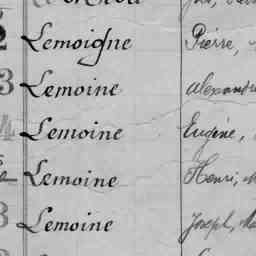 2 Lemoigne Pierre,
3 Lemoine Alexandre
4 Lemoine Eugène,
Lemoine Henri, M
3 Lemoine Joseph, Ma